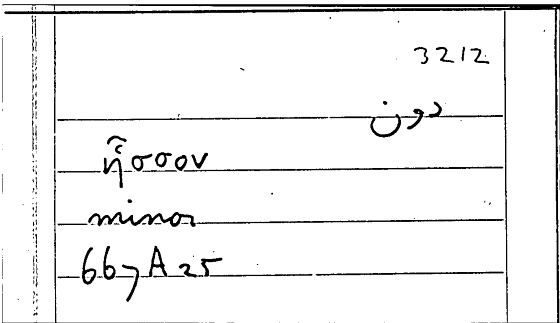 3212
دون
ἧσσον
minor
667 A 25